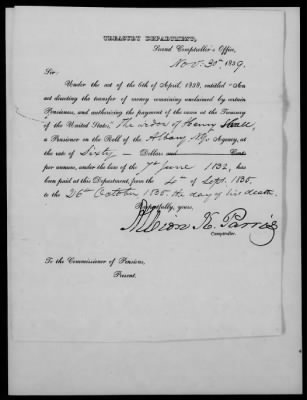 TREASURY DEPARTMENT,
Second Comptroller's Office,
Nov. 30th, 1839.
Sir:
Under the act of the 6th of April, 1838, entitled "An
act directing the transfer of money remaining unclaimed by certain
Pensioners, and authorizing the payment of the same at the Treasury
of the United States," The widow of Henry
a Pensioner on the Roll of the Albany N.Y. Agency, at
the rate of Sixty — Dollars and — Cents
per annum, under the law of the 7th June 1832, has
been paid at this Department, from the 4th of Sept. 1835.
to the 26th October 1835, the day of his death.
Respectfully, yours,
Albion K. Parris
Comptroller.
To the Commissioner of Pensions,
Present.